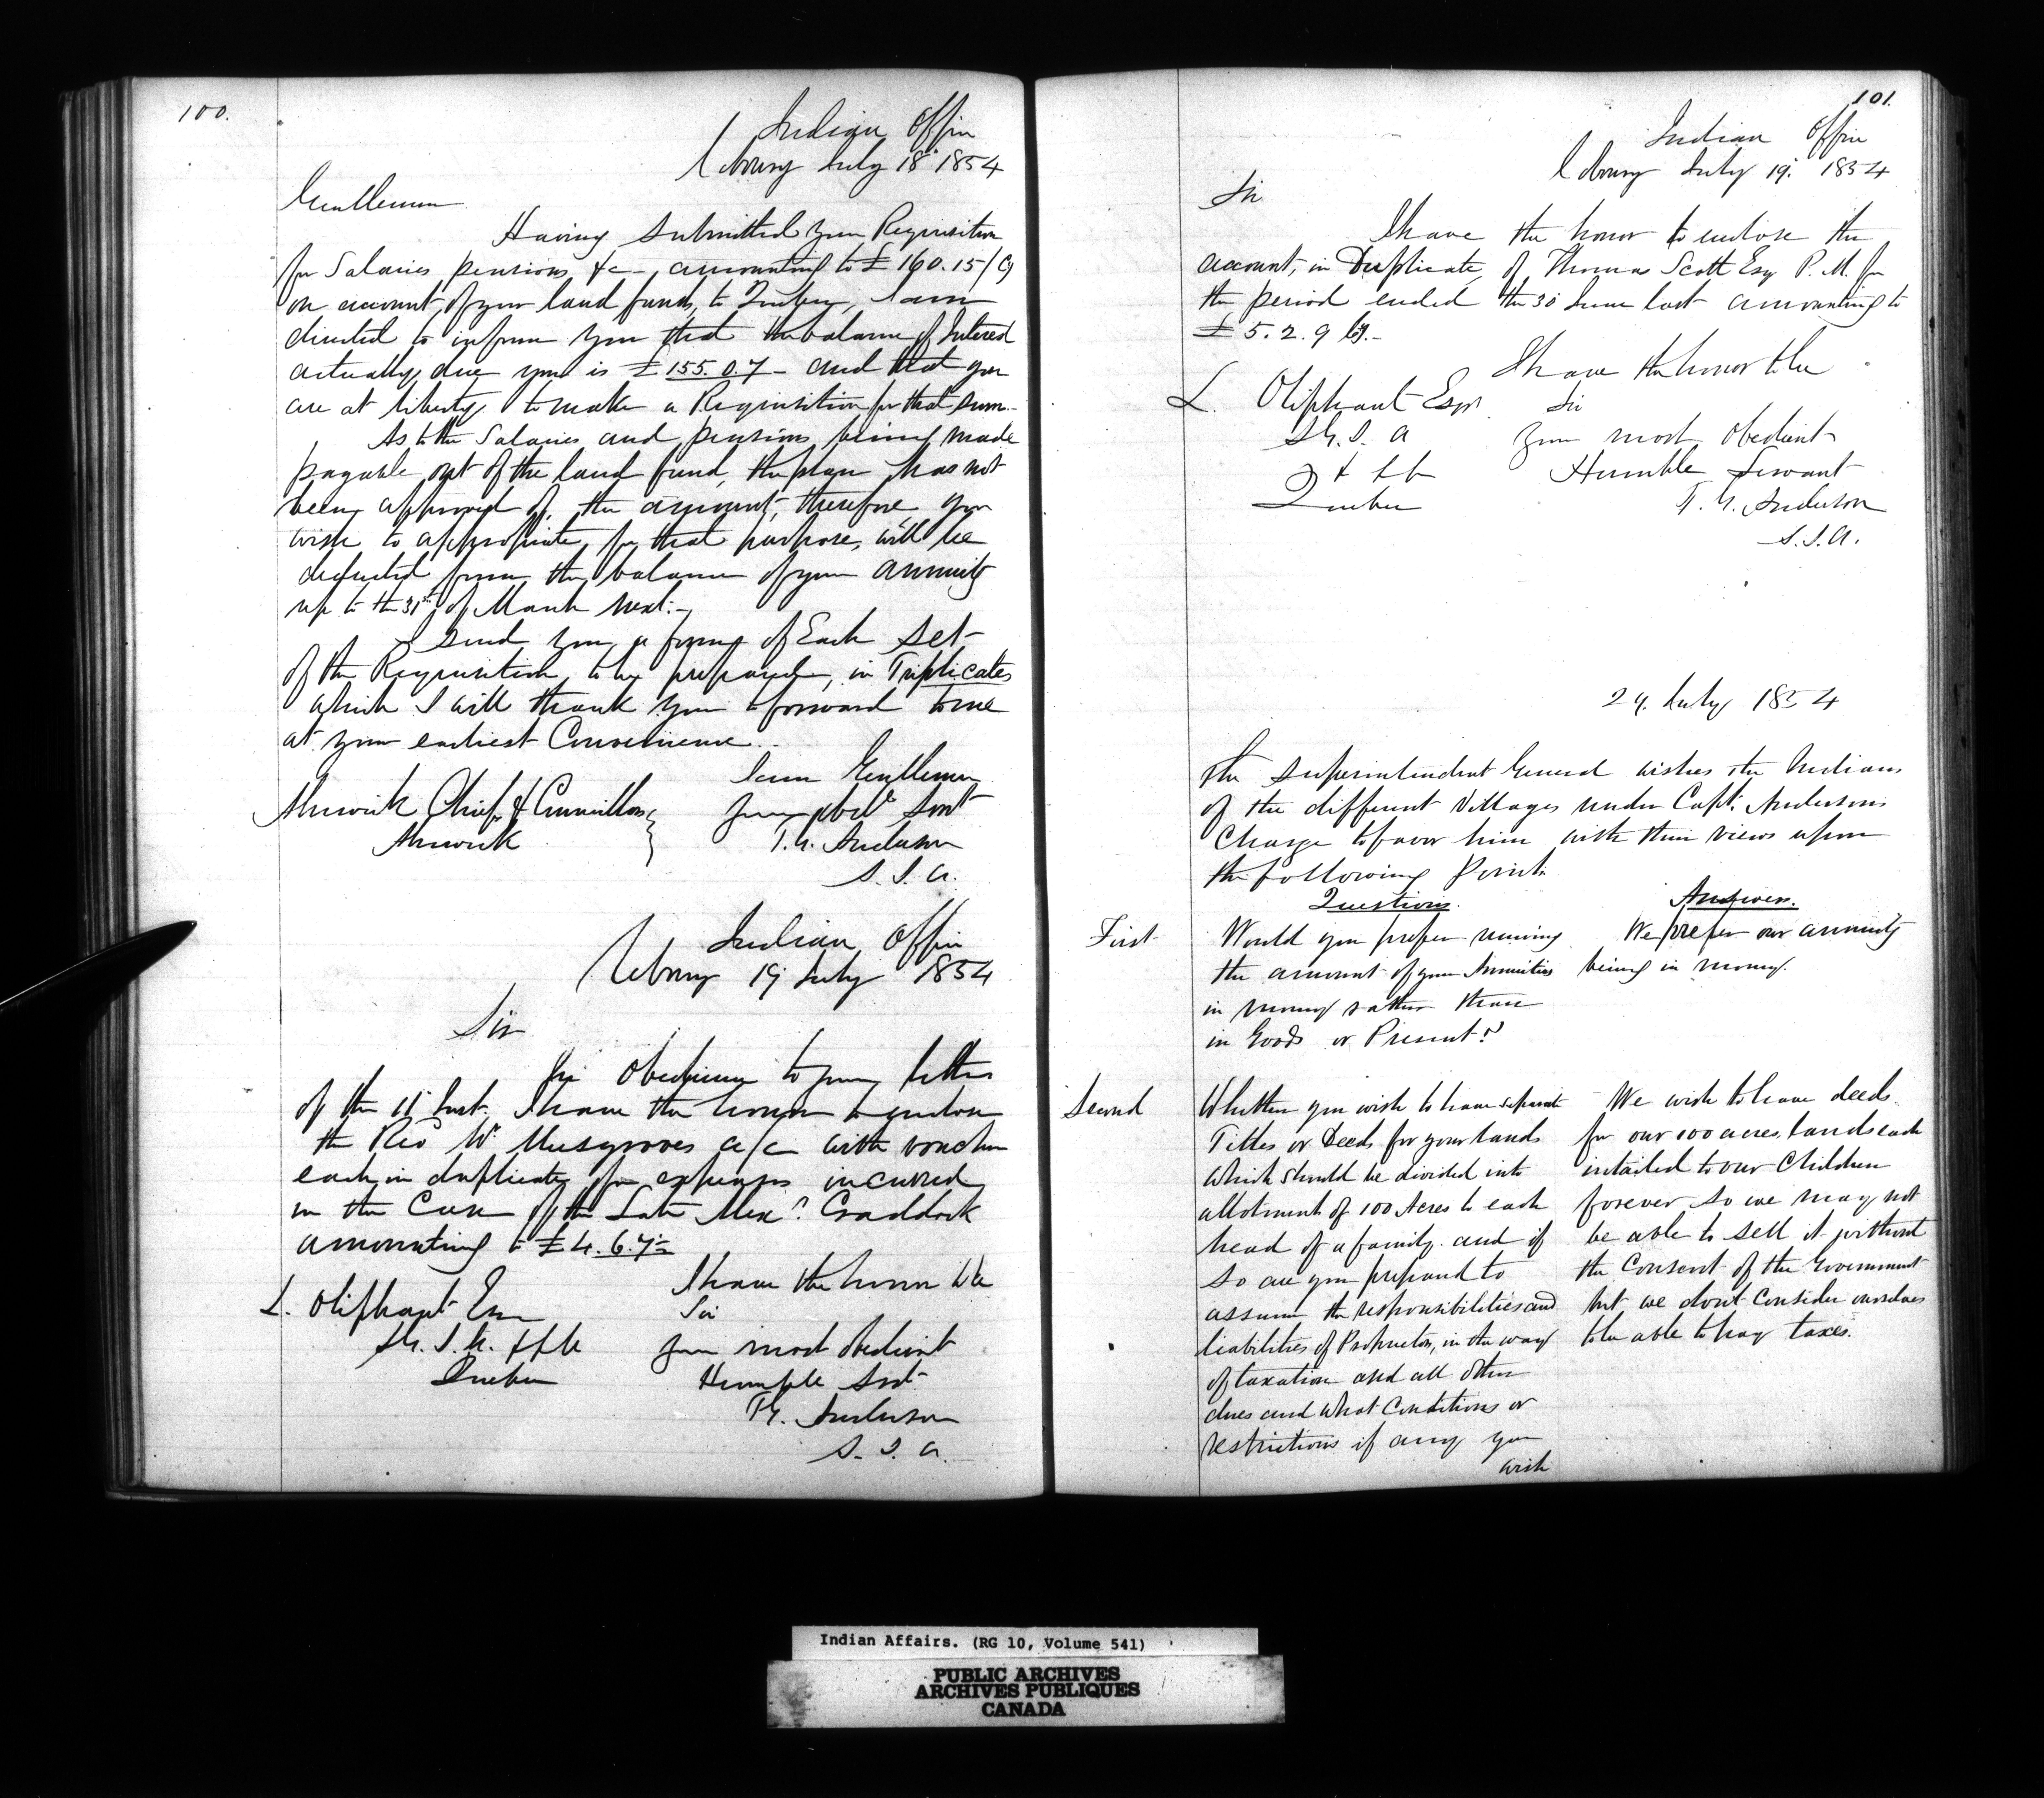 100.
Indian Office
Cobourg July 18th 1854
Gentlemen
Having submitted your Requisition
for Salaries pensions, &c - amounting to £160.15/
on account of your land funds, to Quebec, I am
directed to inform you that the balance of Interest
actually due you is £155.0.7 - and that you
are at liberty to make a Requisition for that sum.-
As to the Salaries and pensions being made
payable out of the land fund, the plan has not
being approved of, the amount, therefore, you
wish to appropriate for that purpose, will be
deducted from the balance of your annuity
up to the 31st of March next.-
I send you a form of Each set
of the Requisition to be prepared, in Triplicates
which I will thank you to forward to me
at your earliest Convenience..
I am Gentlemen
Alnwick Chief & Councillors
Your obdt Svnt
Alnwick
T.G. Anderson
S.I.A.
Indian Office
Cobourg 19 July 1854
Sir
In Obedience to your letter
of the 11th Inst. I have the honor to enclose
the Rev Wm Musgroves a/c with voucher
each in duplicate for expenses incurred
in the Case of the Late Craddock
amounting to £4.6.7½
I have the honor to be
L. Oliphant Esq
Sir
S.G.I.A. &c &c
your most obedient
Quebec
Humble Svt
T.G. Anderson
S.I.A.
101.
Indian Office
Cobourg July 19th 1854
Sir
I have the honor to enclose the
account, in Duplicate, of Thomas Scott Esq P.M. for
the period ended the 30 June last amounting to
£5.2.9
I have the honor to be
L. Oliphant Esqr
Sir
S.G.I.A
Your most Obedient
& &c &c
Humble Servant
Quebec
T.G. Anderson
S.I.A.
24. July 1854
The Superintendent General wishes the Indians
of the different Villages under Capt. Andersons
Charge to favor him with their views upon
the following Points
Questions.
Answers.
First
Would you prefer receiving
the amount of your Annuities
in money rather than
in Goods or Present?
We prefer our annuity
being in money.
Second
Whether you wish to have separate
Titles or Deeds for your lands
which should be divided into
allotment of 100 Acres to each
head of a family. and if
so are you prepared to
assume the responsibilities and
liabilities of Proprietors, in the way
of taxation and all other
dues and what Conditions or
restrictions if any you
wish
We wish to have deeds
for our 100 acres, lands each
intailed to our Children
forever so we may not
be able to sell it without
the Consent of the Government
but we dont Consider ourselves
to be able to pay taxes.
Indian Affairs. (RG 10, Volume 541)
PUBLIC ARCHIVES
ARCHIVES PUBLIQUES
CANADA